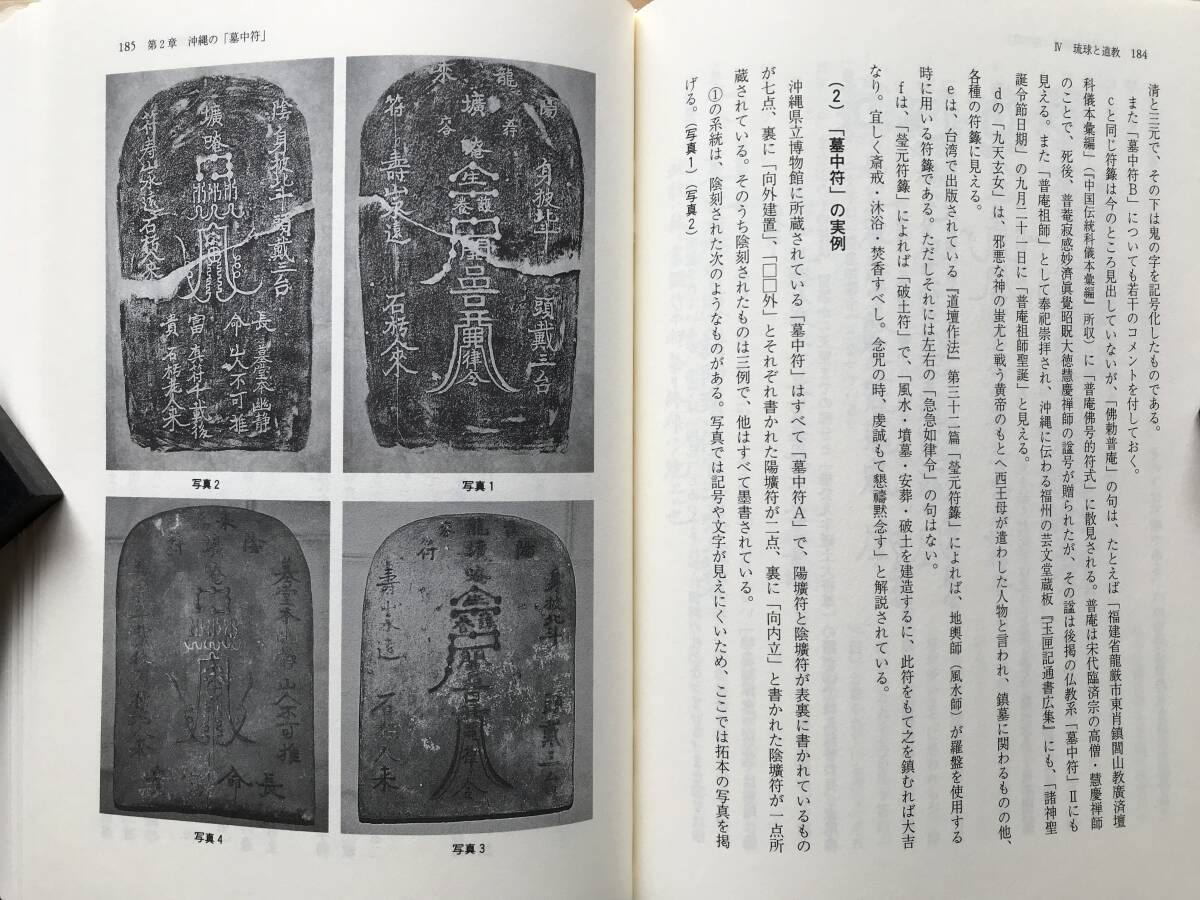 Ⅳ 琉球と道教 184
清と三元で、その下は鬼の字を記号化したものである。
また「墓中符B」についても若干のコメントを付しておく。
cと同じ符籙は今のところ見出していないが、「佛勅普庵」の句は、たとえば「福建省龍厳市東肖鎮閭山教廣済壇
科儀本彙編」(『中国伝統科儀本彙編』所収)に「普庵佛号的符式」に散見される。普庵は宋代臨済宗の高僧・慧慶禅師
のことで、死後、普菴寂感妙濟眞覺昭貺大徳慧慶禅師の諡号が贈られたが、その諡は後掲の仏教系「墓中符」Ⅱにも
見える。また「普庵祖師」として奉祀崇拝され、沖縄に伝わる福州の芸文堂蔵板『玉匣記通書広集』にも、「諸神聖
誕令節日期」の九月二十一日に「普庵祖師聖誕」と見える。
dの「九天玄女」は、邪悪な神の蚩尤と戦う黄帝のもとへ西王母が遣わした人物と言われ、鎮墓に関わるものの他、
各種の符籙に見える。
eは、台湾で出版されている『道壇作法』第三十二篇「瑩元符籙」によれば、地輿師(風水師)が羅盤を使用する
時に用いる符籙である。ただしそれには左右の「急急如律令」の句はない。
fは、「瑩元符籙」によれば「破土符」で、「風水・墳墓・安葬・破土を建造するに、此符をもて之を鎮むれば大吉
なり。宜しく斎戒・沐浴・焚香すべし。念咒の時、虔誠もて懇禱黙念す」と解説されている。
(2) 「墓中符」の実例
沖縄県立博物館に所蔵されている「墓中符」はすべて「墓中符A」で、陽壙符と陰壙符が表裏に書かれているもの
が七点、裏に「向外建置」、「□□外」とそれぞれ書かれた陽壙符が二点、裏に「向内立」と書かれた陰壙符が一点所
蔵されている。そのうち陰刻されたものは三例で、他はすべて墨書されている。
①の系統は、陰刻された次のようなものがある。写真では記号や文字が見えにくいため、ここでは拓本の写真を掲
げる。(写真1)(写真2)
185 第2章 沖縄の「墓中符」
陽 身披北斗 頭戴三台
龍 壙
来
符 壽山永遠 石朽人來
写真1
陰 身披北斗 頭戴三台
壙
符 壽山永遠 石朽人來
長 墓堂本幽靜
命 山人不可推
富
貴 石朽人來
写真2
陽 身披北斗 頭戴三台
龍 壙
符
壽山永遠 石朽人来
写真3
来
陰
壙
符
長
命
写真4